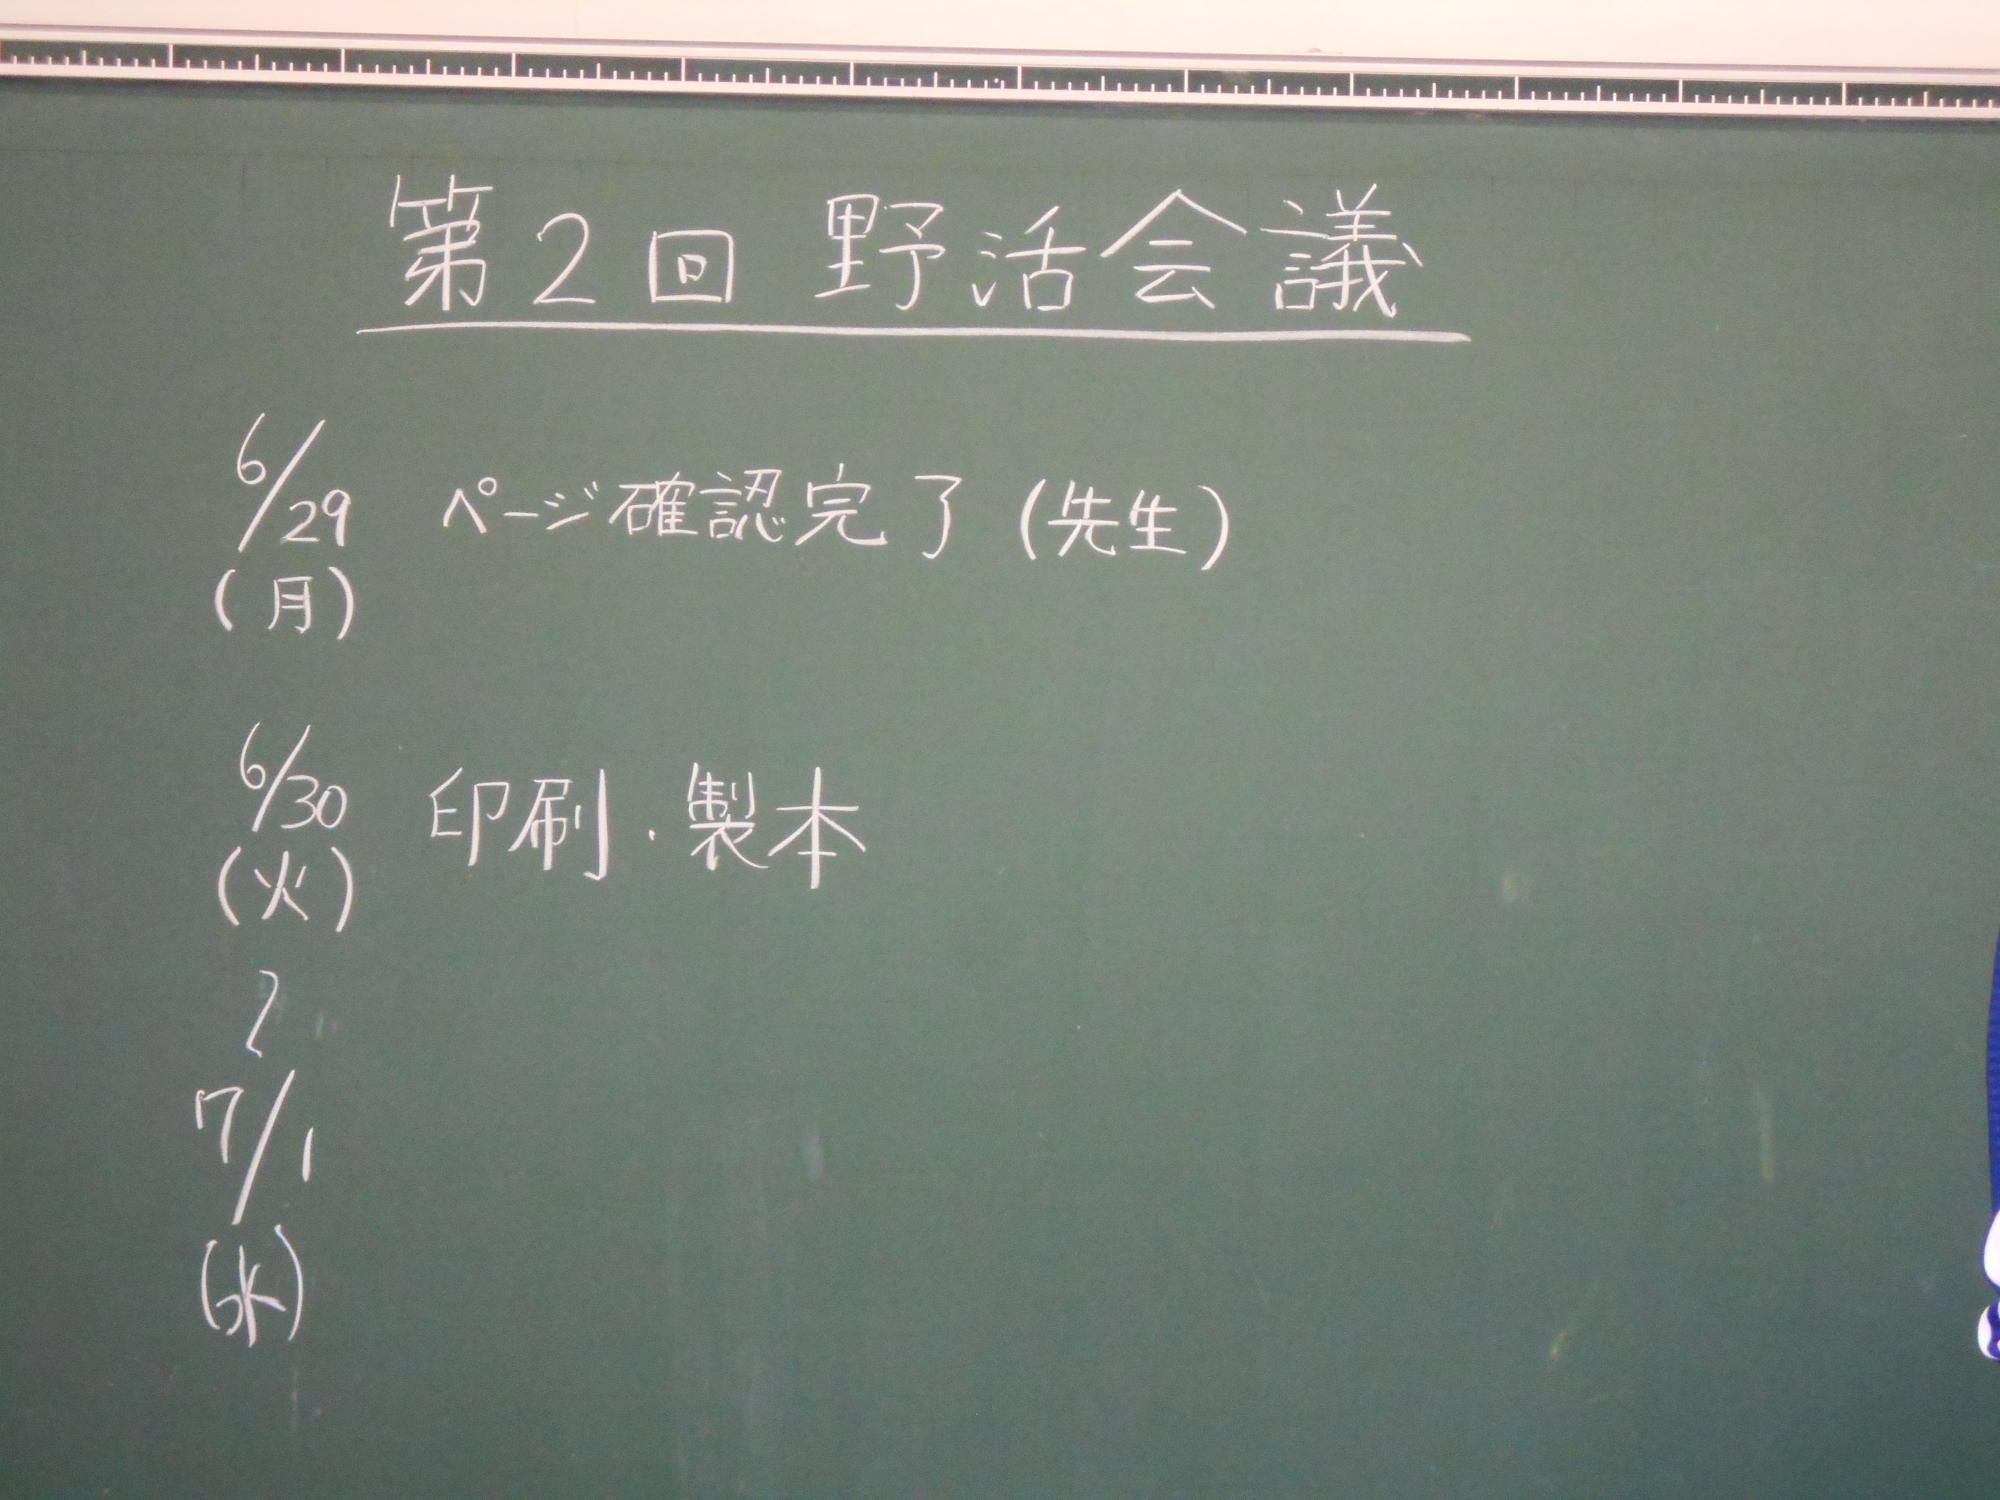 第2回 野活会議
6/29 ページ確認完了(先生)
(月)
6/30 印刷・製本
(火)
〜
7/1
(水)